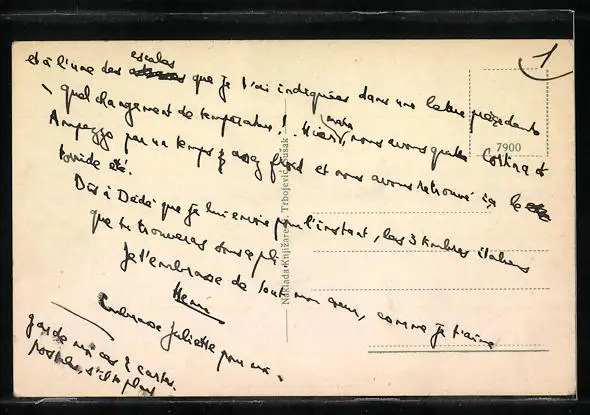 1
escales
et à l'une des que je t'ai indiquées dans une lettre précédente
quel changement de température !
matin
Hier, nous avons quitté Cortina d'
Ampezzo par un temps assez froid et nous avons retrouvé ici le
torride été.
7900
Dis à Dédé que je lui envoie pour l'instant, les 3 timbres italiens
que tu trouveras sous pli
Je t'embrasse de tout mon cœur, comme je t'aime
Embrasse Juliette pour moi.
garde moi ces 2 cartes
postales, s'il te plait
Naklada Knjižare G. Trbojević, Sušak